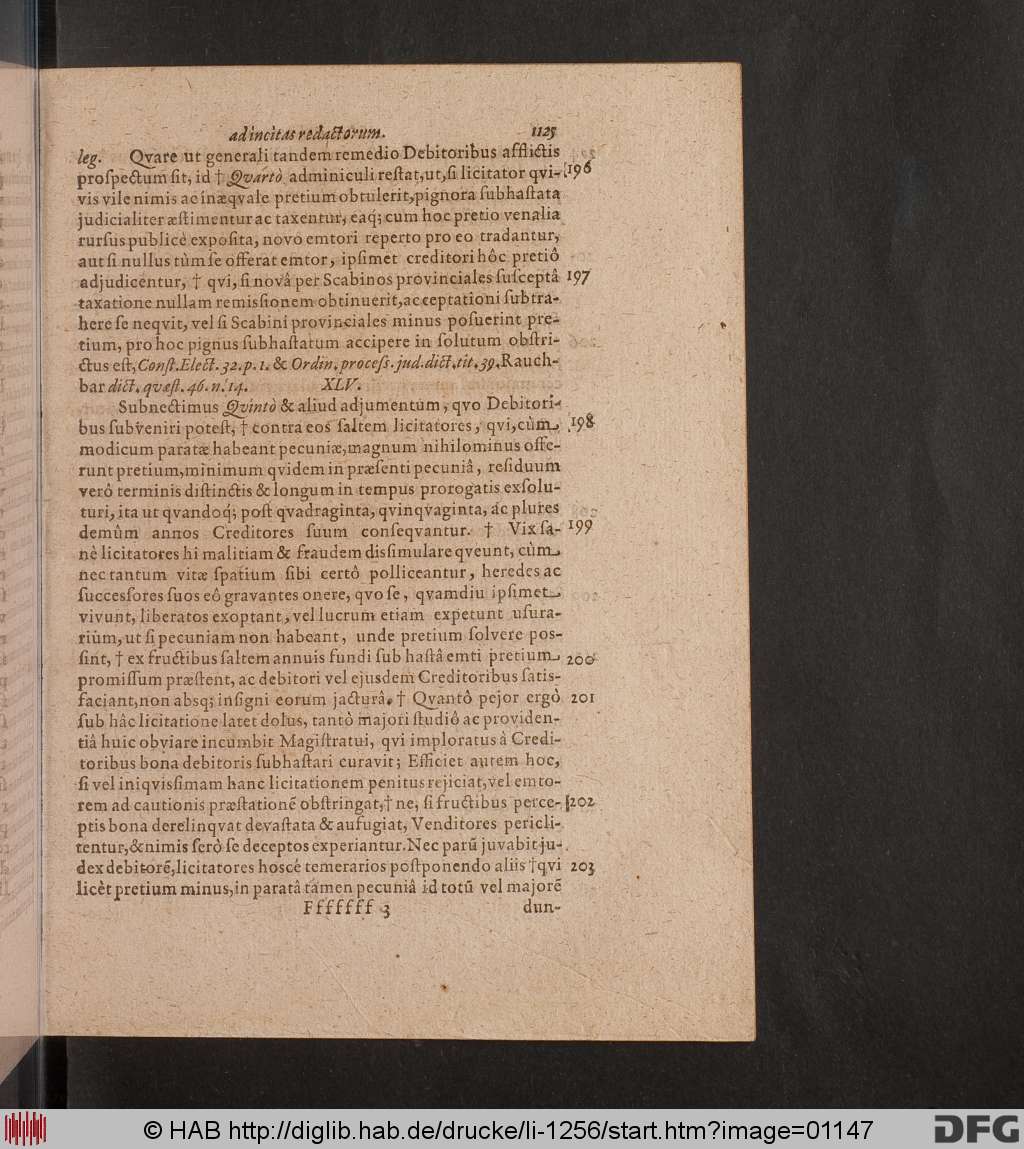 ad incitas redactorum. 1125
leg. Qvare ut generali tandem remedio Debitoribus afflictis
proſpectum ſit, id † Qvartò adminiculi reſtat, ut, ſi licitator qvi- 196
vis vile nimis ac inæqvale pretium obtulerit, pignora ſubhaſtata
judicialiter æſtimentur ac taxentur, eaq; cum hoc pretio venalia
rurſus publicè expoſita, novo emtori reperto pro eo tradantur,
aut ſi nullus tùm ſe offerat emtor, ipſimet creditori hôc pretiô
adjudicentur, † qvi, ſi novâ per Scabinos provinciales ſuſceptâ 197
taxatione nullam remiſſionem obtinuerit, acceptationi ſubtra-
here ſe neqvit, vel ſi Scabini provinciales minus poſuerint pre-
tium, pro hoc pignus ſubhaſtatum accipere in ſolutum obſtri-
ctus eſt, Conſt. Elect. 32. p. 1. & Ordin. proceſſ. jud. dict. tit. 39. Rauch-
bar dict. qvæſt. 46. n. 14. XLV.
Subnectimus Qvintò & aliud adjumentum, qvo Debitori-
bus ſubveniri poteſt, † contra eos ſaltem licitatores, qvi, cùm 198
modicum paratæ habeant pecuniæ, magnum nihilominus offe-
runt pretium, minimum qvidem in præſenti pecuniâ, reſiduum
verô terminis diſtinctis & longum in tempus prorogatis exſolu-
turi, ita ut qvandoq́; poſt qvadraginta, qvinqvaginta, ac plures
demûm annos Creditores ſuum conſeqvantur. † Vix ſa- 199
nè licitatores hi malitiam & fraudem diſſimulare qveunt, cùm
nec tantum vitæ ſpatium ſibi certô polliceantur, heredes ac
ſucceſſores ſuos eô gravantes onere, qvo ſe, qvamdiu ipſimet
vivunt, liberatos exoptant, vel lucrum etiam expetunt uſura-
rium, ut ſi pecuniam non habeant, unde pretium ſolvere poſ-
ſint, † ex fructibus ſaltem annuis fundi ſub haſtâ emti pretium 200
promiſſum præſtent, ac debitori vel ejusdem Creditoribus ſatis-
faciant, non absq; inſigni eorum jacturâ. † Qvantô pejor ergò 201
ſub hâc licitatione latet dolus, tantò majori ſtudiô ac providen-
tiâ huic obviare incumbit Magiſtratui, qvi imploratus â Credi-
toribus bona debitoris ſubhaſtari curavit; Efficiet autem hoc,
ſi vel iniqviſſimam hanc licitationem penitus rejiciat, vel emto-
rem ad cautionis præſtationē obſtringat, † ne, ſi fructibus perce- 202
ptis bona derelinqvat devaſtata & aufugiat, Venditores pericli-
tentur, & nimis ſerò ſe deceptos experiantur. Nec parū juvabit ju-
dex debitorē, licitatores hoſce temerarios poſtponendo aliis † qvi 203
licèt pretium minus, in paratâ tamen pecuniâ id totū vel majorē
Fffffff 3 dun-
© HAB http://diglib.hab.de/drucke/li-1256/start.htm?image=01147
DFG